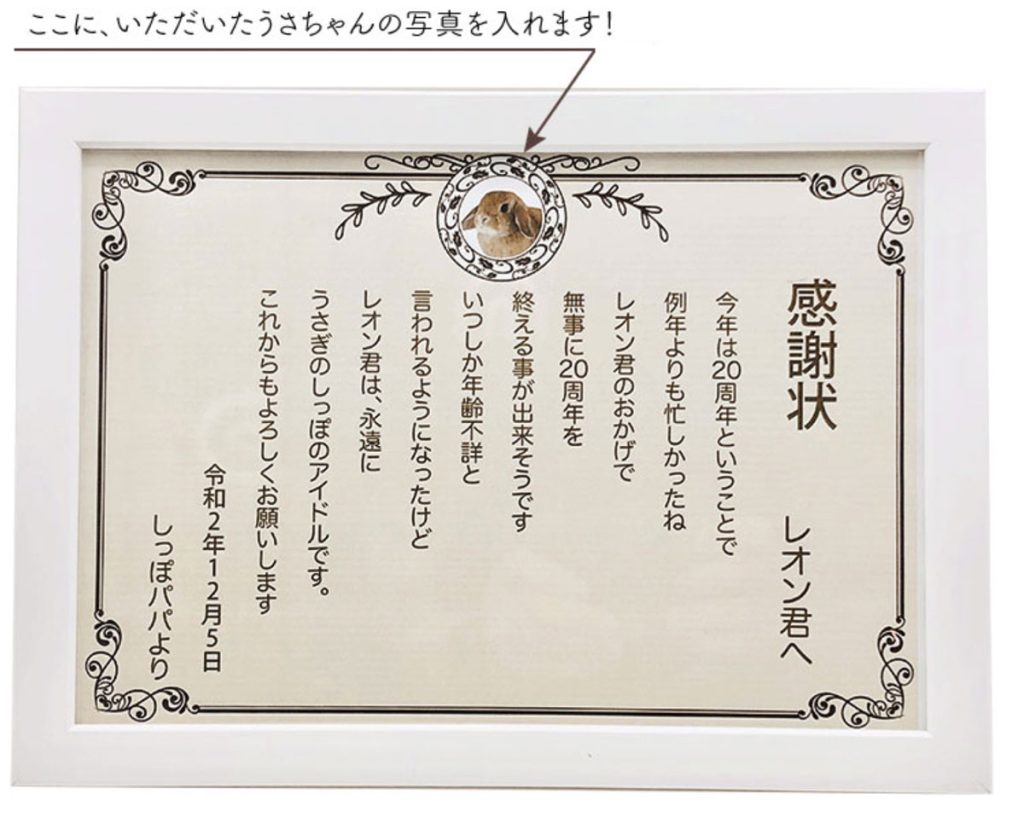 ここに、いただいたうさちゃんの写真を入れます!
感謝状
レオン君へ
今年は20周年ということで
例年よりも忙しかったね
レオン君のおかげで
無事に20周年を
終える事が出来そうです
いつしか年齢不詳と
言われるようになったけど
レオン君は、永遠に
うさぎのしっぽのアイドルです。
これからもよろしくお願いします
令和2年12月5日
しっぽパパより